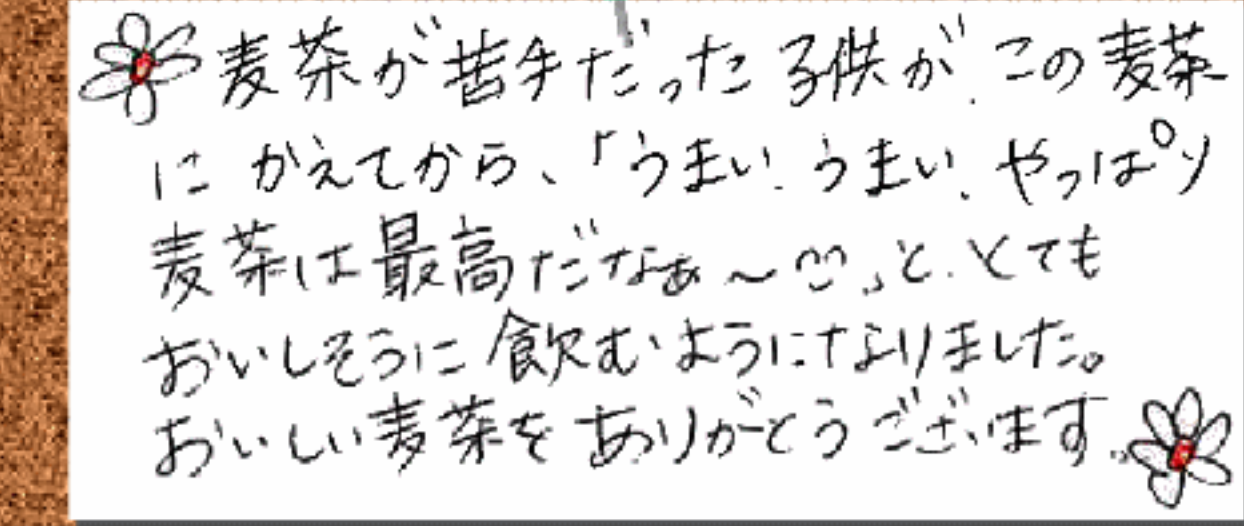 麦茶が苦手だった子供が、この麦茶
にかえてから、「うまい、うまい、やっぱり
麦茶は最高だなぁ～」と、とても
おいしそうに飲むようになりました。
おいしい麦茶をありがとうございます。